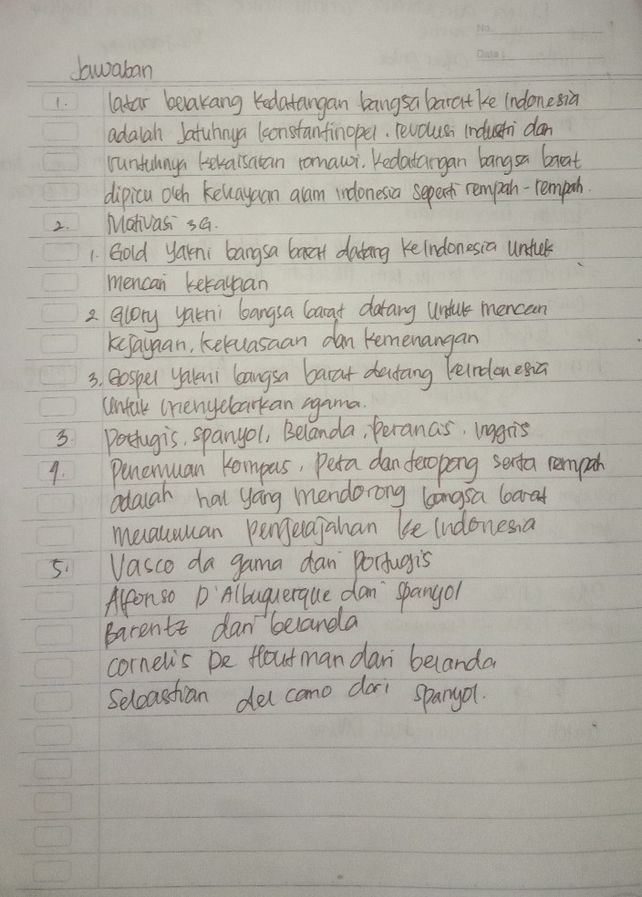 No.
Date :
Jawaban
1. latar belakang kedatangan bangsa barat ke Indonesia
adalah Jatuhnya konstantinopel. revolusi industri dan
runtuhnya kekaisaran romawi. kedatangan bangsa barat
dipicu oleh kekayaan alam indonesia seperti rempah-rempah.
2. Motivasi 3G.
1. Gold yakni bangsa barat datang ke Indonesia untuk
mencari kekayaan
2. Glory yakni bangsa barat datang untuk mencari
kejayaan, kekuasaan dan kemenangan
3. Gospel yakni bangsa barat datang ke indonesia
untuk menyebarkan agama.
3. Portugis, spanyol, Belanda, perancis, inggris
4. Penemuan kompas, peta dan teropong serta rempah
adalah hal yang mendorong bangsa barat
melakukan penjelajahan ke Indonesia
5. Vasco da gama dari portugis
Alfonso D'Albuquerque dari spanyol
Barentz dari belanda
cornelis De Houtman dari belanda
Sebastian del cano dari spanyol.